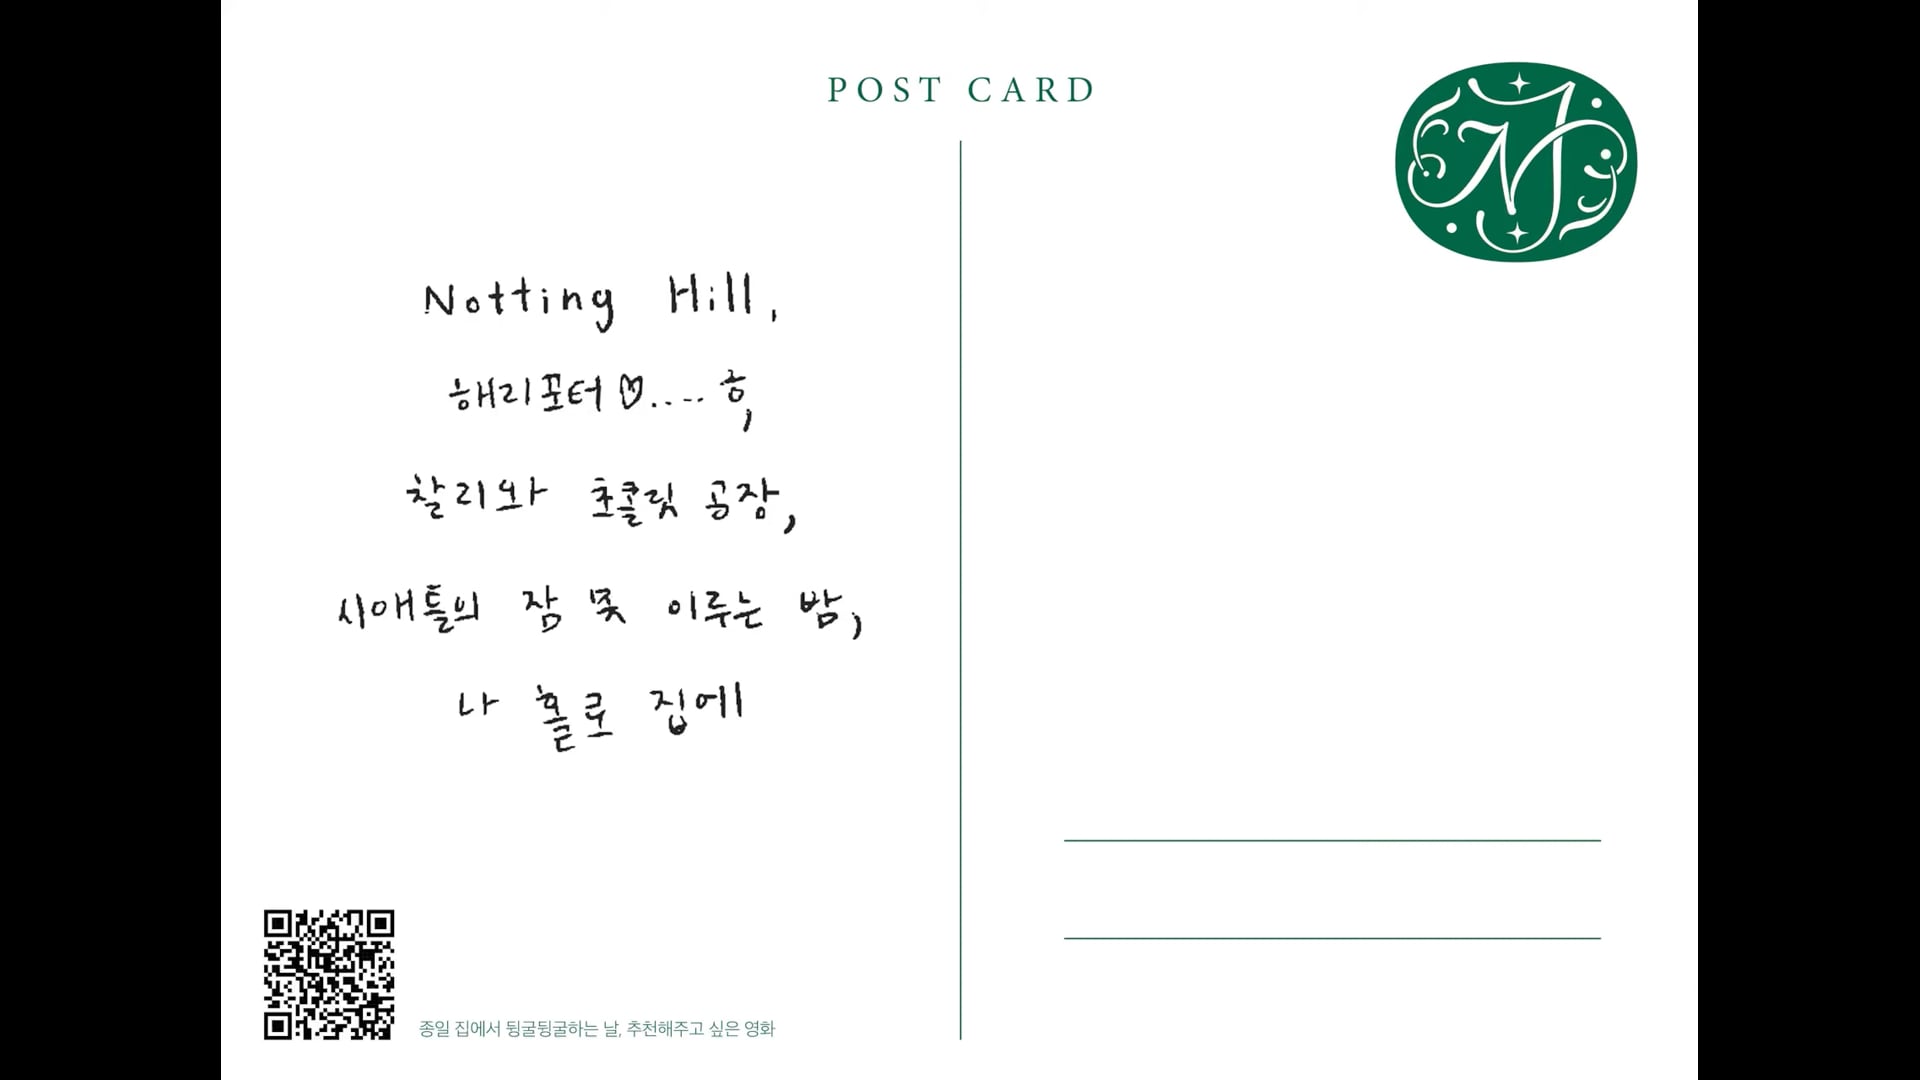 POST CARD
Notting Hill,
해리포터♡.... 흥,
찰리와 초콜릿 공장,
시애틀의 잠 못 이루는 밤,
나 홀로 집에
종일 집에서 뒹굴뒹굴하는 날, 추천해주고 싶은 영화